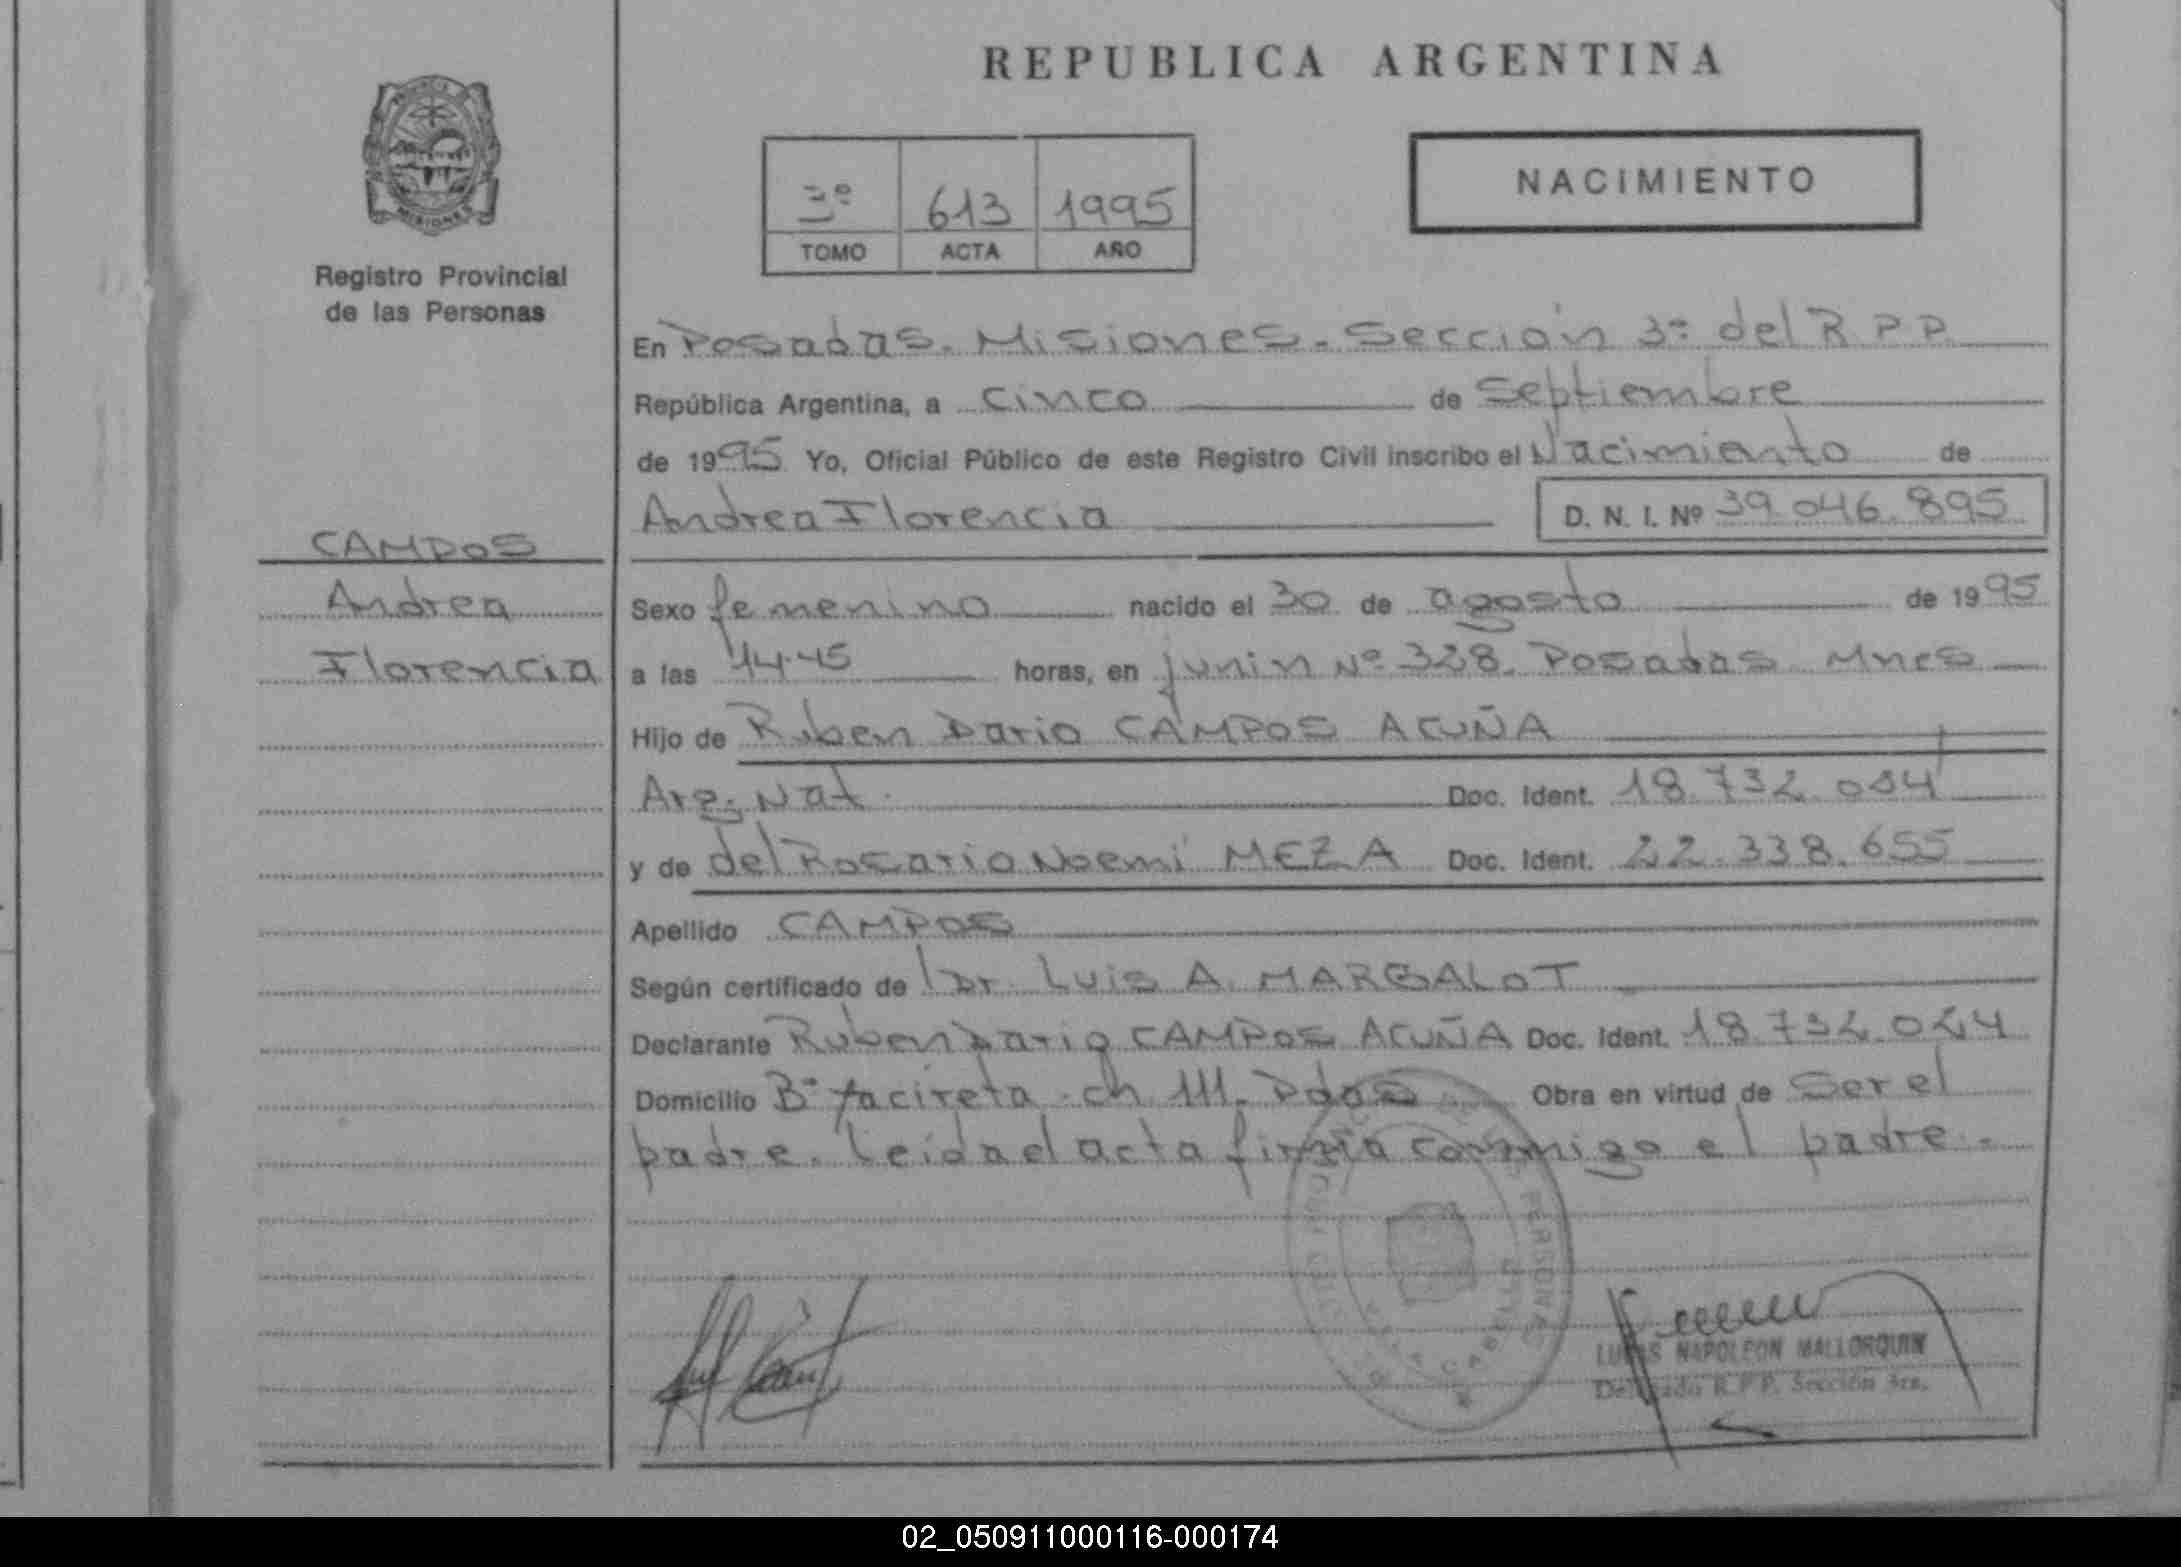 REPUBLICA ARGENTINA
NACIMIENTO
3º 613 1995
TOMO ACTA AÑO
MISIONES
Registro Provincial
de las Personas
En Posadas. Misiones. Sección 3ª del R.P.P.
República Argentina, a cinco de Septiembre
de 1995 Yo, Oficial Público de este Registro Civil inscribo el Nacimiento de
Andrea Florencia D. N. I. Nº 39.046.895
CAMPOS
Andrea
Florencia
Sexo femenino nacido el 30 de agosto de 1995
a las 14.45 horas, en junin Nº 328. Posadas Mnes
Hijo de Ruben Dario CAMPOS ACUÑA
Arg. Nat. Doc. Ident. 18.732.
y de del Rosario Noemí MEZA Doc. Ident. 22.338.655
Apellido CAMPOS
Según certificado de Dr. Luis A. MARGALOT
Declarante Rúben Dario CAMPOS ACUÑA Doc. Ident. 18.732.024
Domicilio Bº Yacireta ch 111. Pdas Obra en virtud de Ser el
padre. Leída el acta firma conmigo el padre.-
LUCAS NAPOLEON MALLORQUIN
Delegado R.P.P. Sección 3ra.
02_050911000116-000174